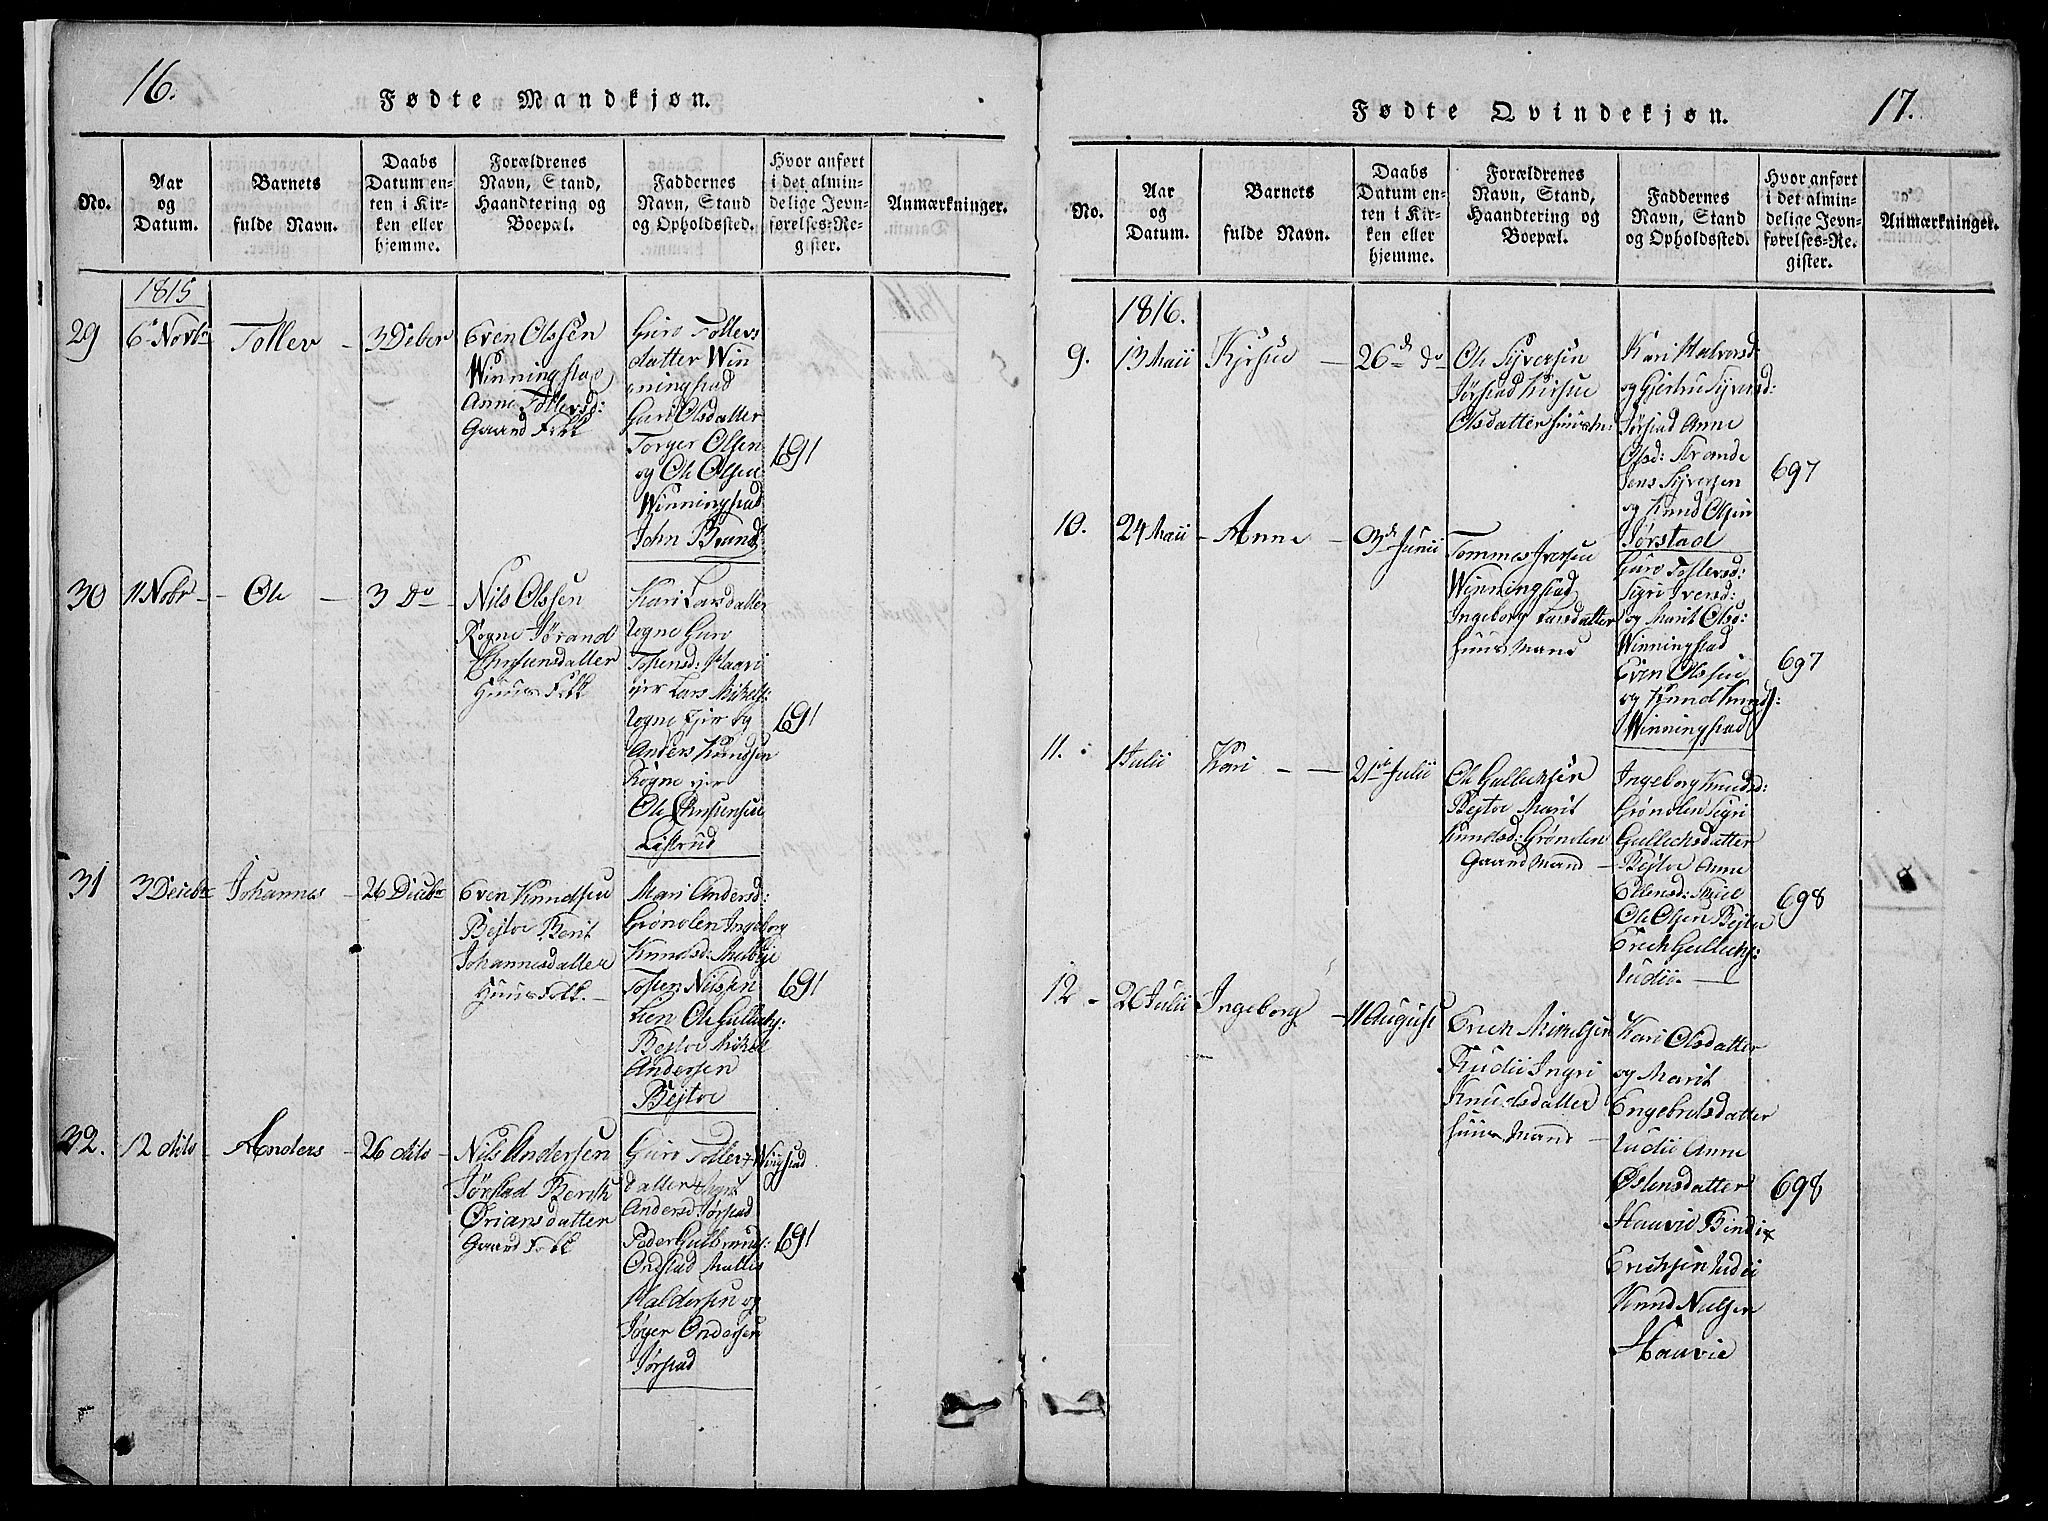 16.
Fødte Mandkjøn.
No.
Aar
og
Datum.
Barnets
fulde Navn.
Daabs
Datum en-
ten i Kir-
ken eller
hjemme.
Forældrenes
Navn, Stand,
Haandtering og
Boepæl.
Faddernes
Navn, Stand
og Opholdssted.
Hvor anført
i det almin-
delige Jevn-
førelses-Re-
gister.
Anmærkninger.
1815
29
6 Novbr
Tollev
3 Deber
Even Olssen
Winningstad
Anne Tollevsd:
Gaard Folk
Guro Tollevs
datter Win
ningstad
Guri Olsdatter
Torger Olsen
og Ole Olsen
Winningstad
John Brund
691
30
11 Nobr
Ole
3 Do
Nils Olssen
Rogne Jørand
Christensdatter
Huus Folk
Kari Larsdatter
Rogne Guro
Tostensd:
Lars Mikels:
Rogne
Anders Knudsen
Rogne
Ole Christensen
Listrud
691
31
3 Decebr
Johannes
26 Decebr
Even Knudsen
Bejtoe Berit
Johannesdatter
Huus Folk.
Mari Andersd:
Grønolen Ingeborg
Knudsd:
Tosten Nilssen
Lien Ole Gullichs:
Bejtoe Mikel
Andersen
Bejtoe
691
32.
12 dito
Anders
26 dito
Nils Andersen
Jørstad Berith
Ørjansdatter
Gaard Folk
Guro Tollevs Wingstad
datter Sigri
Andersd Jørstad
Peder Gulbrands:
Ondstad Mattis
Haldorsen og
Jøger Andersen
Jørstad
691
17.
Fødte Qvindekjøn.
No.
Aar
og
Datum.
Barnets
fulde Navn.
Daabs
Datum en-
ten i Kir-
ken eller
hjemme.
Forældrenes
Navn, Stand,
Haandtering og
Boepæl.
Faddernes
Navn, Stand
og Opholdssted.
Hvor anført
i det almin-
delige Jevn-
førelses-Re-
gister.
Anmærkninger.
1816.
9.
13 Maii
Kjrstie
26 do
Ole Syversen
Jørstad Kirstie
Olsdatter huusm:
Kari Halvorsd:
og Gjertrue Syversd:
Jørstad Anne
Olsd: Strande
Jens Syversen
og Knud Olsen
Jørstad
697
10.
24 Maii
Anne
3d Junii
Tommes Iversen
Winningstad
Ingeborg Larsdatter
huus Mand
Guro Tollevsd:
Sigri Iversd:
og Marit Olsd:
Winningstad
Even Olssen
og Knud Knuds:
Winningstad
697
11.
1 Julii
Kari
21de Julii
Ole Gullichsen
Bejtoe Marit
Knudsd: Grønolen
Gaard Mand
Ingeborg Knudsd:
Grønolen Sigri
Gullichsdatter
Bejtoe Anne
Ole Olsen Bejtoe
Erich Gullichs:
Rudii.
698
12
26 Julii
Ingeborg
11 August
Erich Mikelsen
Rudii Ingri
Knudsdatter
huus Mand
Kari Olsdatter
og Marit
Engebretsdatter
Rudii Anne
Østensdatter
Hauvie Bendix
Erichsen Rudii
Knud Nielsen
Hauvie
698